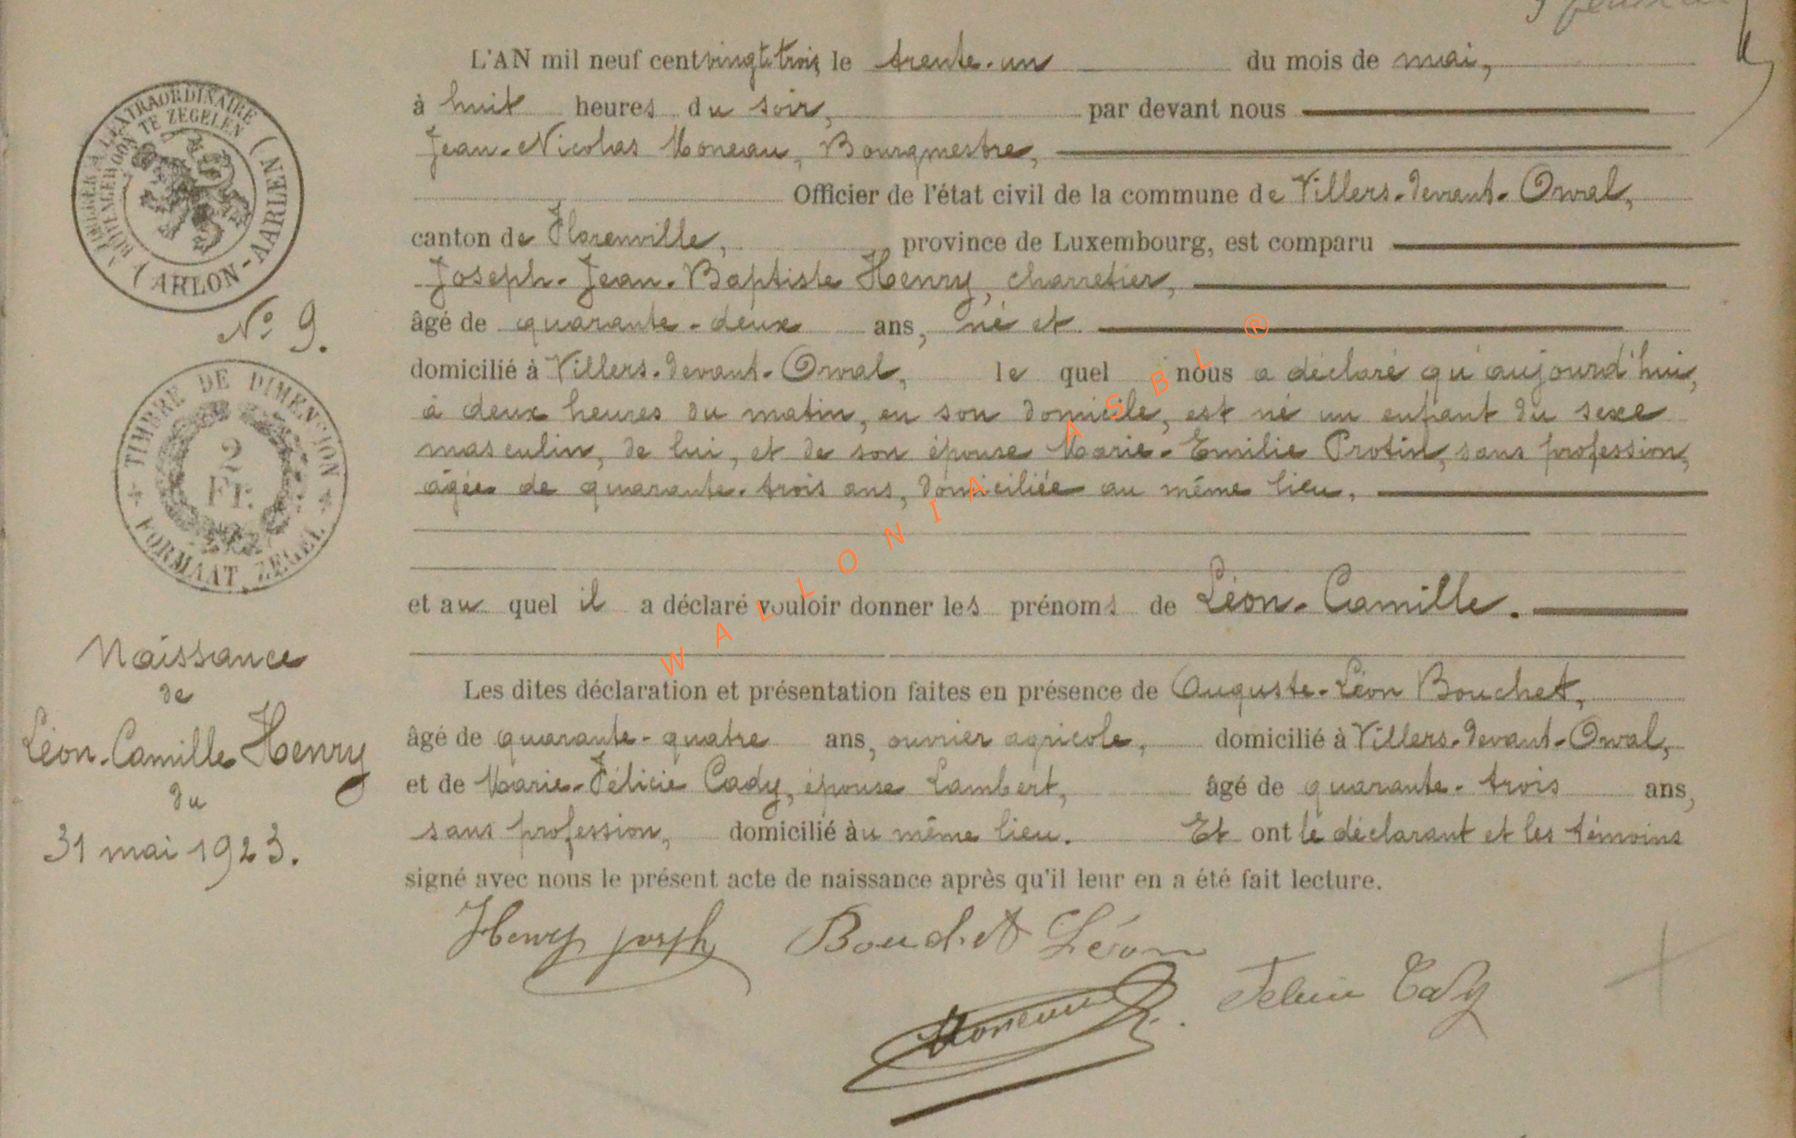 L'AN mil neuf cent vingt-trois, le trente-un du mois de mai,
à huit heures du soir, par devant nous
Jean-Nicolas Moneau, Bourgmestre,
Officier de l'état civil de la commune de Villers-devant-Orval,
canton de Florenville, province de Luxembourg, est comparu
Joseph-Jean-Baptiste Henry, charretier,
âgé de quarante-deux ans, né et
domicilié à Villers-devant-Orval, le quel nous a déclaré qu'aujourd'hui,
à deux heures du matin, en son domicile, est né un enfant du sexe
masculin, de lui, et de son épouse Marie-Emilie Protin, sans profession,
âgée de quarante-trois ans, domiciliée au même lieu.
et au quel il a déclaré vouloir donner les prénoms de Léon-Camille.
Les dites déclaration et présentation faites en présence de Auguste-Léon Bouchet,
âgé de quarante-quatre ans, ouvrier agricole, domicilié à Villers-devant-Orval,
et de Marie-Félicie Cady, épouse Lambert, âgé de quarante-trois ans,
sans profession, domicilié au même lieu. Et ont le déclarant et les témoins
signé avec nous le présent acte de naissance après qu'il leur en a été fait lecture.
Henry Joseph Bouchet Léon
Felicie Cady
Moneau
TIMBRE À L'EXTRAORDINAIRE
BUITENGEWOON TE ZEGELEN
(ARLON-AARLEN)
No 9.
TIMBRE DE DIMENSION
2
Fr.
FORMAAT ZEGEL
Naissance
de
Léon-Camille Henry
du
31 mai 1923.
WALLONIA ASBL ®